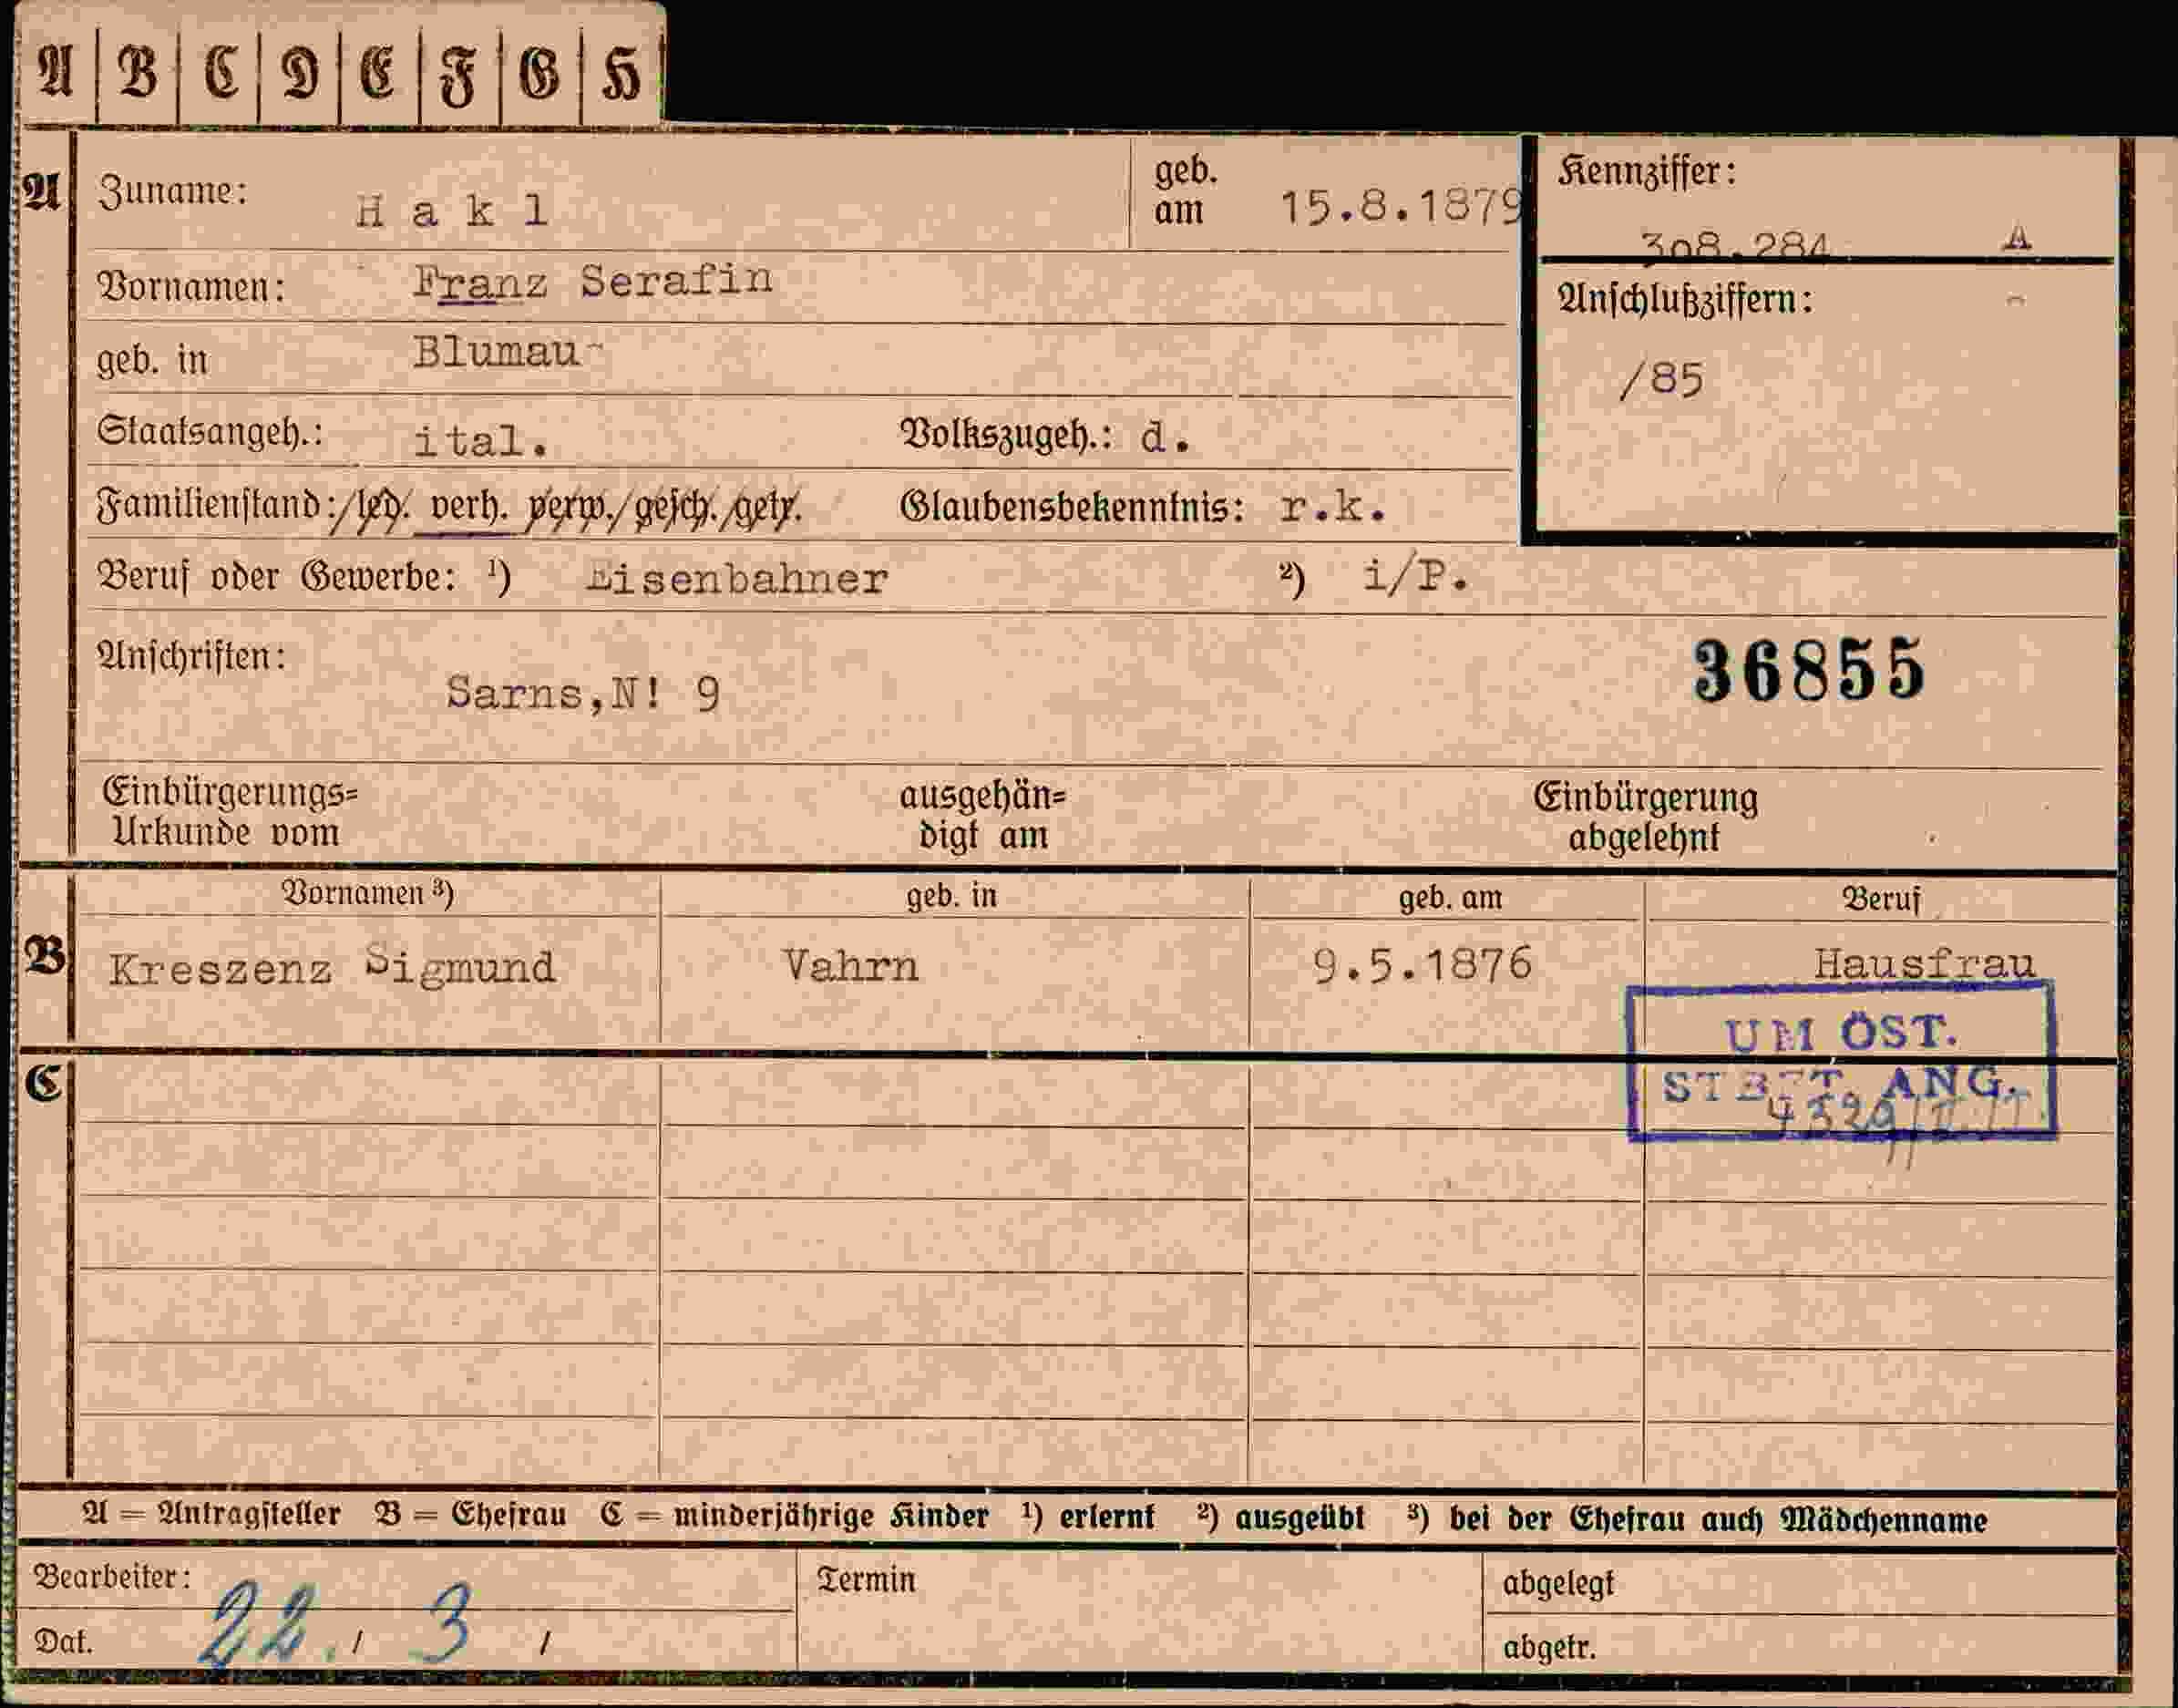 A B C D E F G H
A Zuname: Hakl geb. am 15.8.1879 Kennziffer: 308.284 A
Vornamen: Franz Serafin Anschlußziffern:
geb. in Blumau /85
Staatsangeh.: ital. Volkszugeh.: d.
Familienstand: led. verh. verw. gesch. getr. Glaubensbekenntnis: r.k.
Beruf oder Gewerbe: ¹) Eisenbahner ²) i/P.
Anschriften: Sarns, N! 9 36855
Einbürgerungs= ausgehän= Einbürgerung
Urkunde vom digt am abgelehnt
Vornamen ³) geb. in geb. am Beruf
B Kreszenz Sigmund Vahrn 9.5.1876 Hausfrau
UM ÖST.
C ANG.
A = Antragsteller B = Ehefrau C = minderjährige Kinder ¹) erlernt ²) ausgeübt ³) bei der Ehefrau auch Mädchenname
Bearbeiter: Termin abgelegt
Dat. 22. / 3 / abgetr.